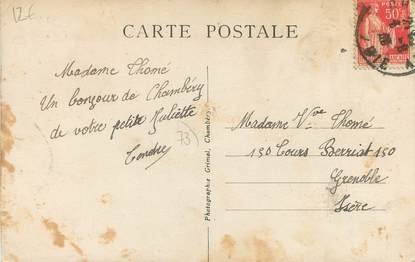 12€
CARTE POSTALE
50c
Madame Thomé
Un bonjour de Chambéry
de votre petite Juliette
Tendre
73
Photographie Grimal, Chambéry
Madame Vve Thomé
150 Cours Berriat 150
Grenoble
Isère